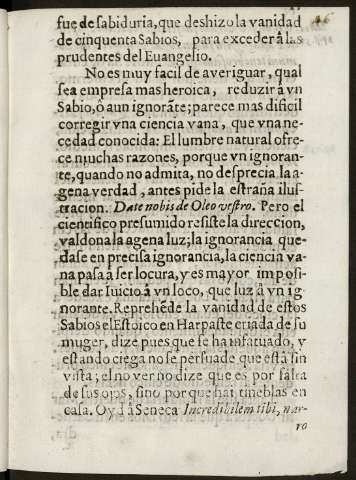 46
fue de sabiduria, que deshizo la vanidad
de cinquenta Sabios, para exceder â las
prudentes del Euangelio.
No es muy facil de averiguar, qual
sea empresa mas heroica, reduzir â vn
Sabio, ô aun ignorãte; parece mas dificil
corregir vna ciencia vana, que vna ne-
cedad conocida: El lumbre natural ofre-
ce muchas razones, porque vn ignoran-
te, quando no admita, no desprecia la a-
gena verdad, antes pide la estraña ilus-
tracion. Date nobis de Oleo vestro. Pero el
cientifico presumido resiste la direccion,
valdona la agena luz; la ignorancia que-
dase en precisa ignorancia, la ciencia va-
na pasa â ser locura, y es mayor imposi-
ble dar Iuicio â vn loco, que luz â vn ig-
norante. Reprehẽde la vanidad de estos
Sabios el Estoico en Harpaste criada de su
muger, dize pues que se ha infatuado, y
estando ciega no se persuade que està sin
vista; el no ver no dize que es por falta
de sus ojos, sino por que hai tineblas en
casa. Oyd â Seneca Incredibilem tibi, nar-
ro